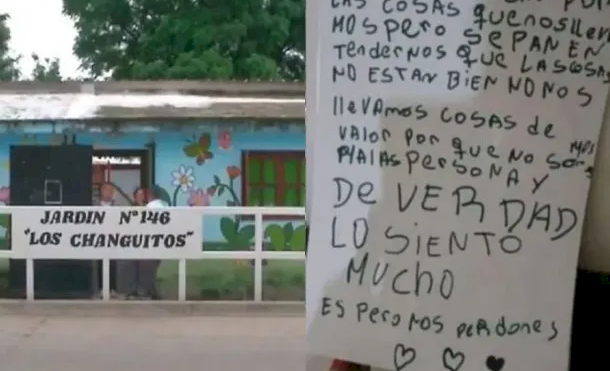 JARDIN Nº146
"LOS CHANGUITOS"
LAS COSAS quenosllev
MOS pero SEPAN EN
TENderNOS QUE LASCOSAS
NO ESTAN BIEN NO NOS
llEVAMOS COSAS de
VALOR POR QUE NO SOMOS
MALAS PERSONA Y
De VERDAD
LO SIENTO
MUCHO
ES PERO NOS PERDONES